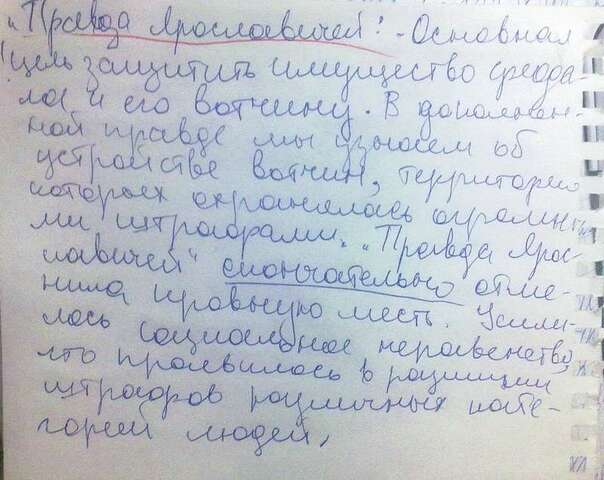 "Правда Ярославичей": - Основная
цель защитить имущество феода-
ла и его вотчину. В дополнен-
ной правде мы узнаем об
устройстве вотчин, территория
которых охранялась огромны-
ми штрафами. "Правда Яро-
славичей" окончательно отме-
нила кровную месть. Усили-
лось социальное неравенство,
что проявилось в разнице
штрафов различных кате-
горий людей,